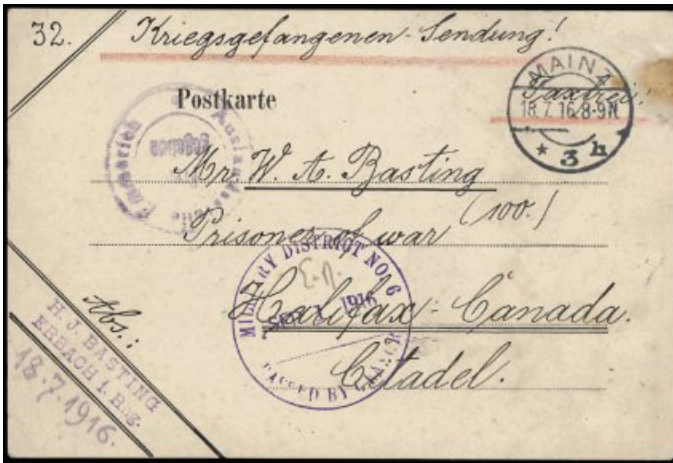 32. Kriegsgefangenen-Sendung!
Postkarte
Taxfrei!
MAINZ
18.7.16.8-9N
* 3 h
Mr. W. A. Basting
(100.)
Prisoner of war
Halifax-Canada.
Citadel.
MILITARY DISTRICT NO. 6
1916
PASSED BY CENSOR
Auslandsstelle Emmerich
Abs.:
H. J. BASTING
ERBACH i. Rhg.
18.7.1916.